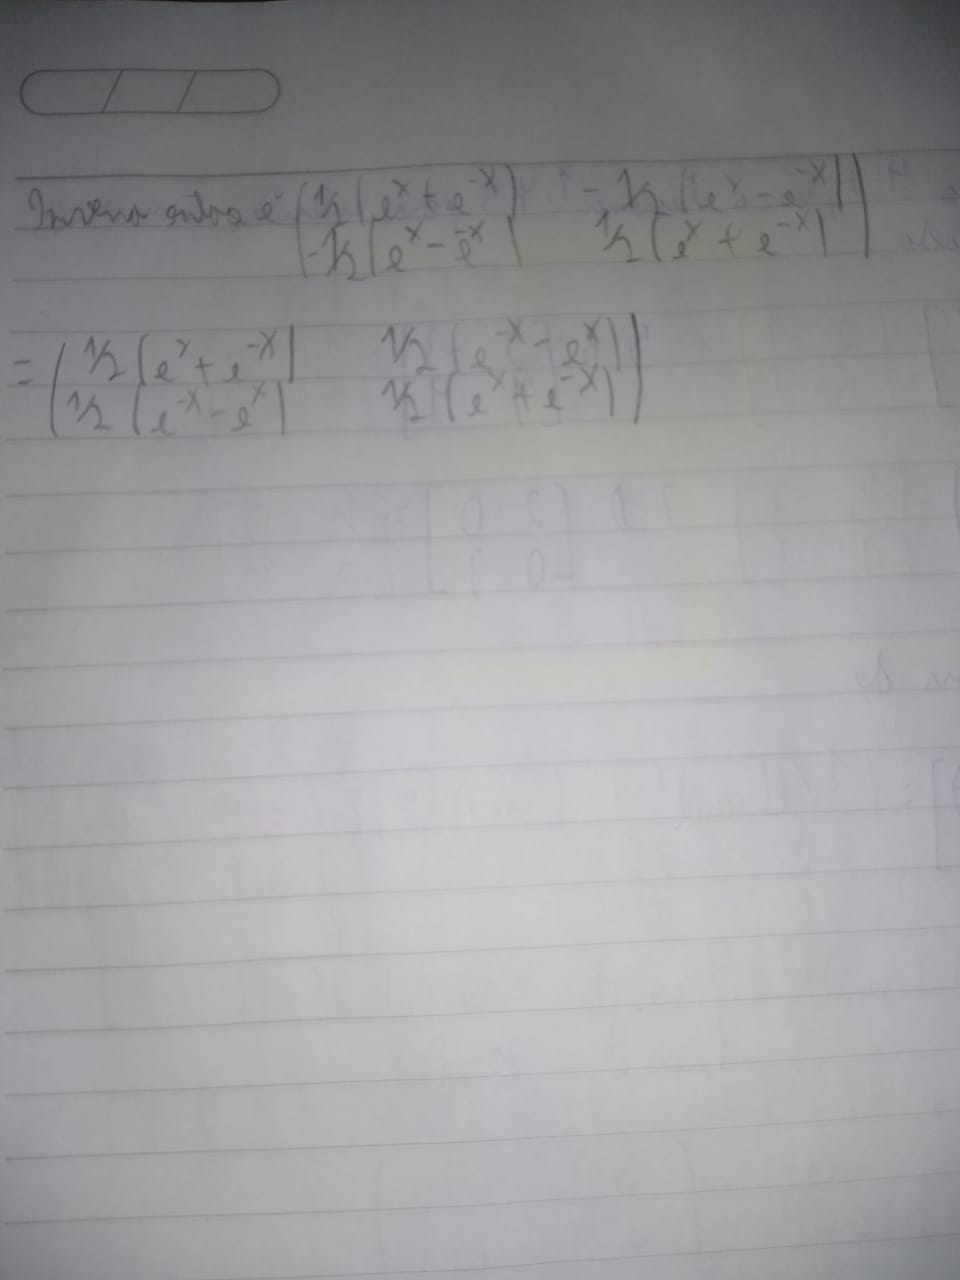 Inversa então é (½(eˣ + e⁻ˣ) -½(eˣ - e⁻ˣ))
(-½(eˣ - e⁻ˣ) ½(eˣ + e⁻ˣ))
= (½(eˣ + e⁻ˣ) ½(e⁻ˣ - eˣ))
(½(e⁻ˣ - eˣ) ½(eˣ + e⁻ˣ))